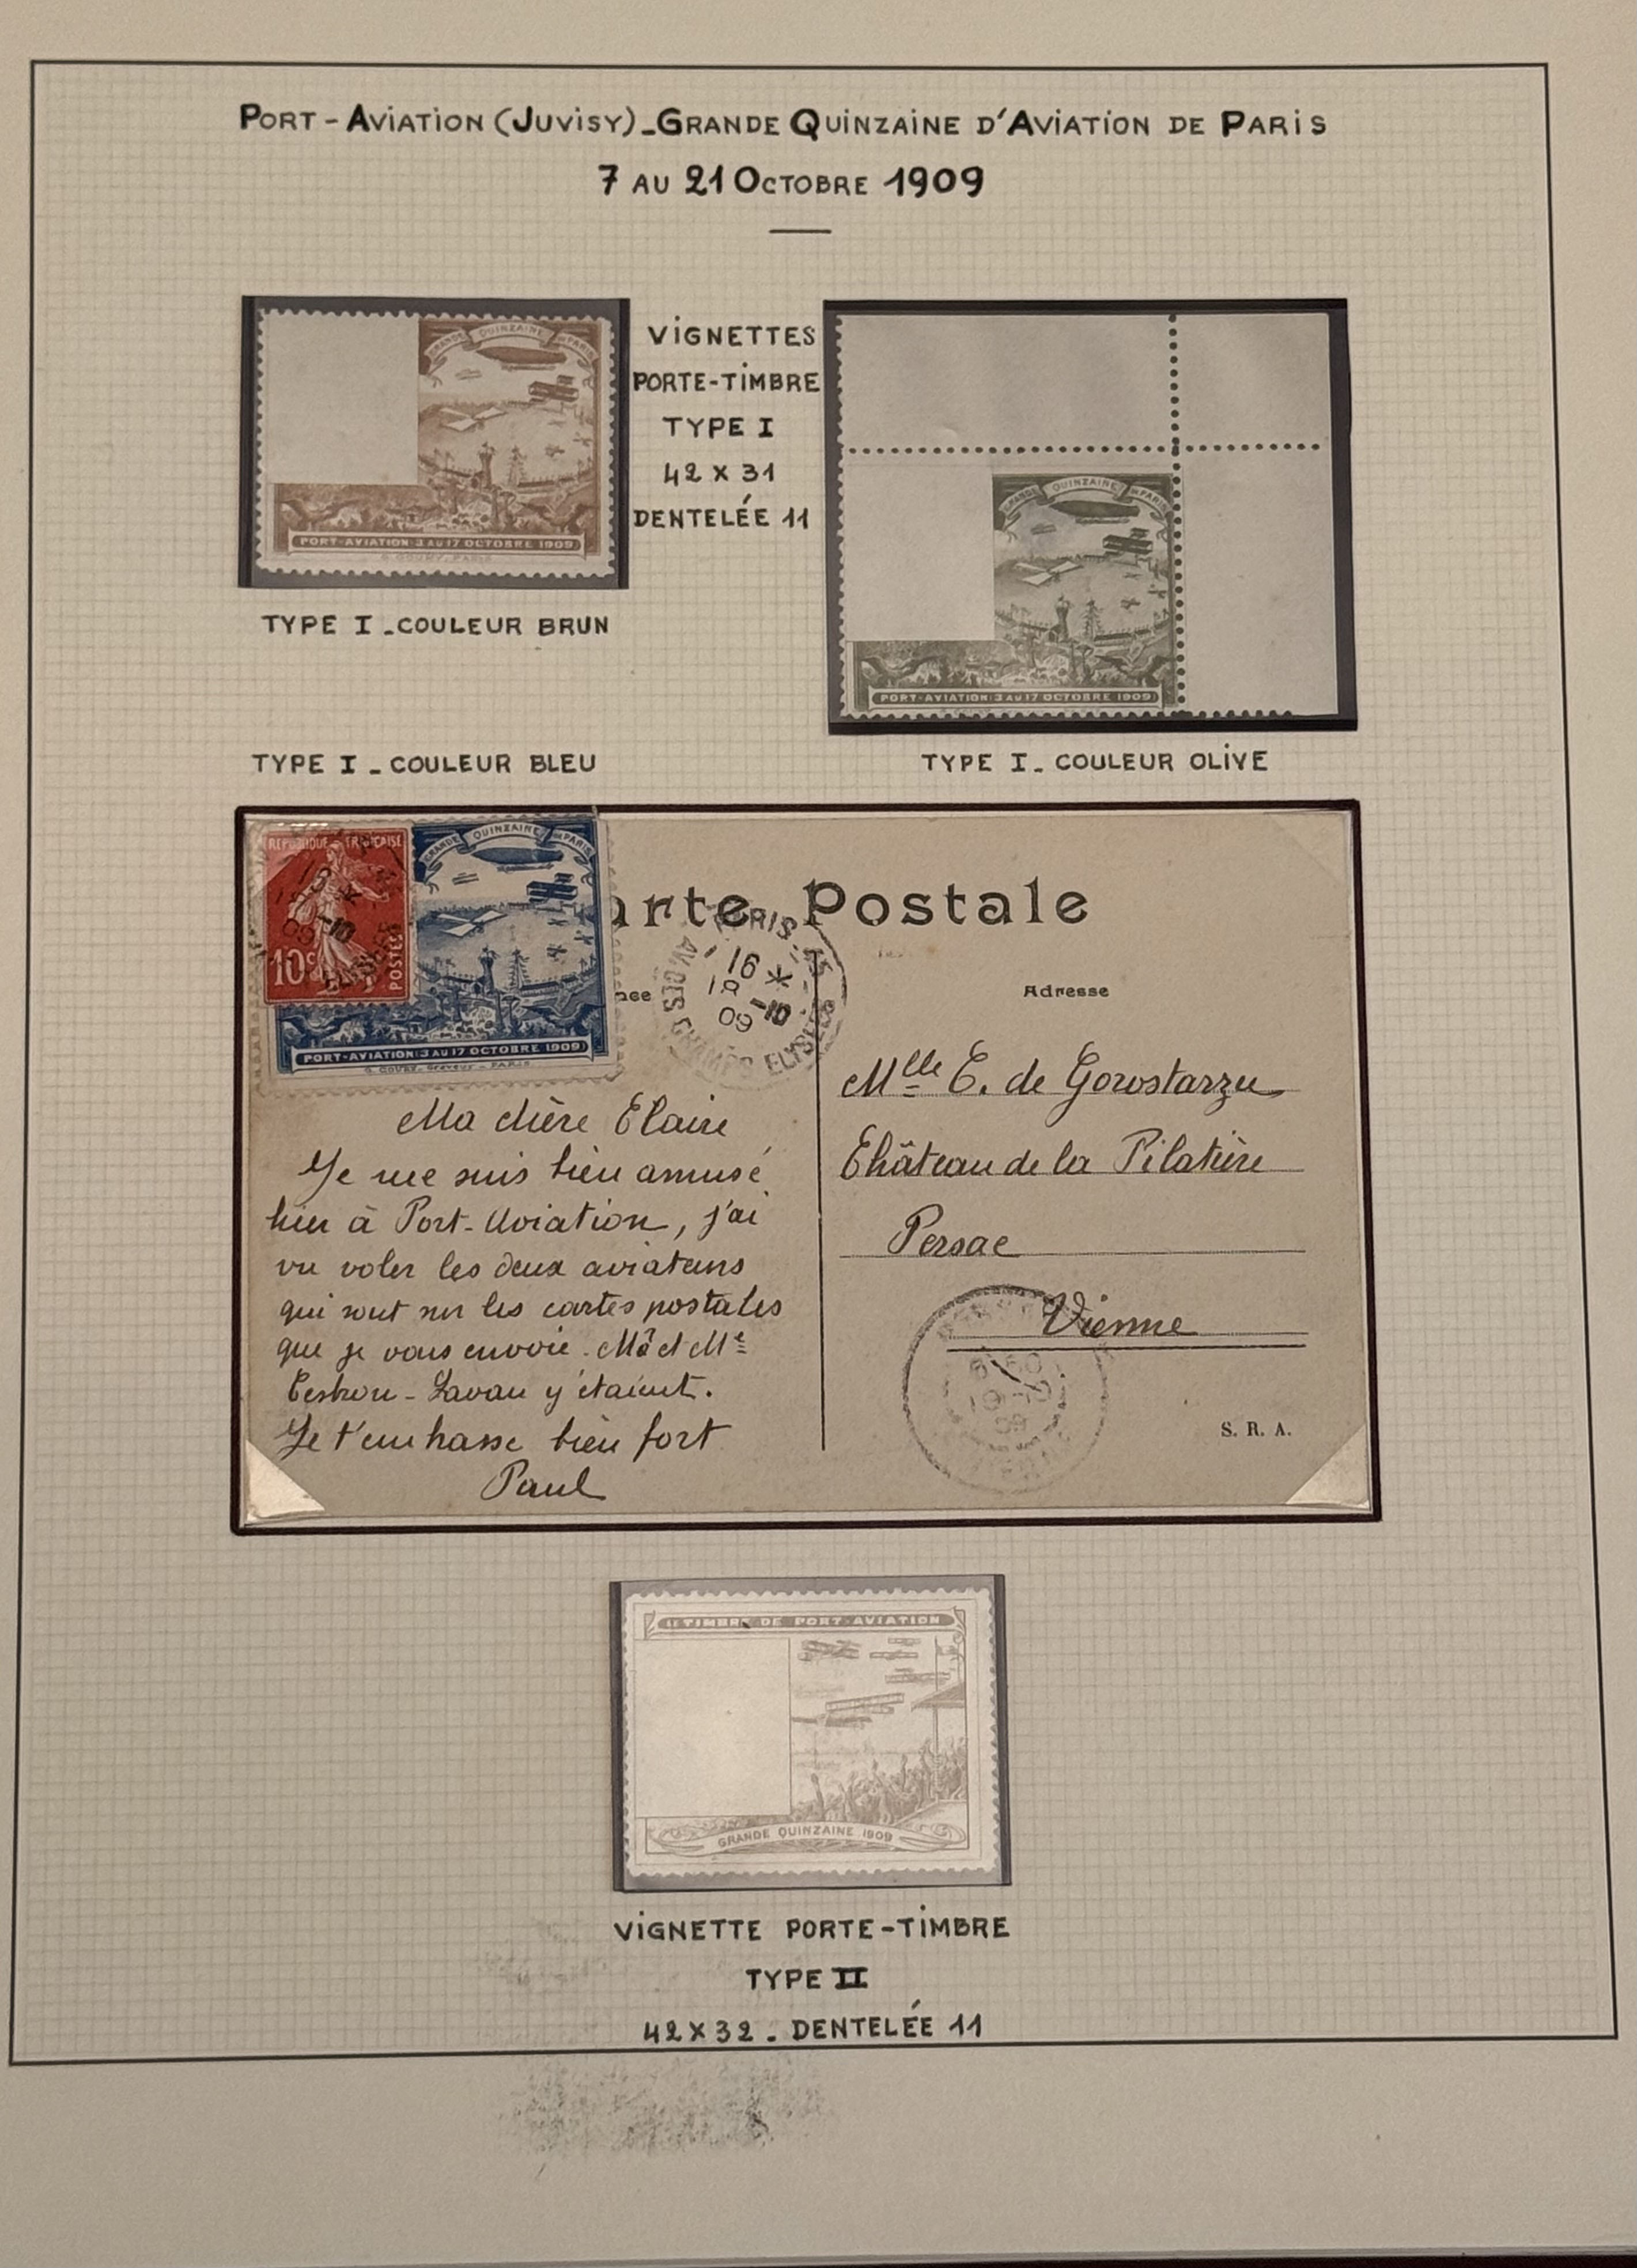 PORT-AVIATION (JUVISY)_GRANDE QUINZAINE D'AVIATION DE PARIS
7 AU 21 OCTOBRE 1909
GRANDE QUINZAINE DE PARIS
PORT-AVIATION 3 AU 17 OCTOBRE 1909
G. GOURY, PARIS
VIGNETTES
PORTE-TIMBRE
TYPE I
42 X 31
DENTELÉE 11
GRANDE QUINZAINE DE PARIS
PORT-AVIATION 3 AU 17 OCTOBRE 1909
TYPE I _ COULEUR BRUN
TYPE I _ COULEUR BLEU
TYPE I _ COULEUR OLIVE
REPUBLIQUE FRANÇAISE
10c
POSTES
GRANDE QUINZAINE DE PARIS
PORT-AVIATION 3 AU 17 OCTOBRE 1909
G. GOURY, Graveur - PARIS
arte Postale
nce
Adresse
PARIS
AV. DES CHAMPS ELYSEES
16 *
19 -10
09
Mlle E. de Gorostarzu
Château de la Pilatière
Persac
Vienne
S. R. A.
Ma chère Claire
Je me suis bien amusé
hier à Port-Aviation, j'ai
vu voler les deux aviateurs
qui sont sur les cartes postales
que je vous envoie. Mr et Me
Lavau y étaient.
Je t'embrasse bien fort
Paul
LE TIMBRE DE PORT-AVIATION
GRANDE QUINZAINE 1909
VIGNETTE PORTE-TIMBRE
TYPE II
42 X 32 _ DENTELÉE 11